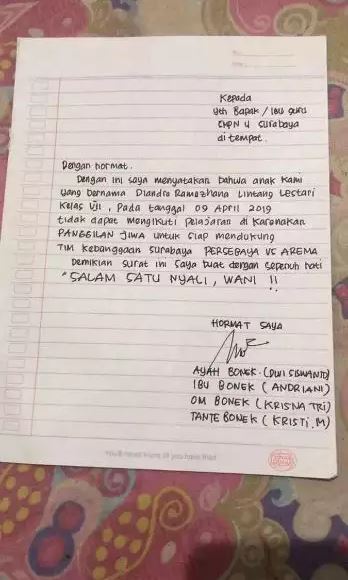 Kepada
Yth Bapak / Ibu Guru
SMPN 4 Surabaya
di tempat.
Dengan hormat.
Dengan ini saya menyatakan bahwa anak kami
yang bernama Diandra Ramezhana Lintang Lestari
Kelas VII, Pada tanggal 09 April 2019
tidak dapat mengikuti pelajaran di karenakan
PANGGILAN JIWA untuk siap mendukung
TIM kebanggaan Surabaya PERSEBAYA VS AREMA
Demikian surat ini saya buat dengan sepenuh hati
"SALAM SATU NYALI, WANI !!
HORMAT SAYA
AYAH BONEK. (DWI SISWANTO)
IBU BONEK (ANDRIANI)
OM BONEK (KRISNA TRI)
TANTE BONEK (KRISTI.M)
You'll never know till you have tried